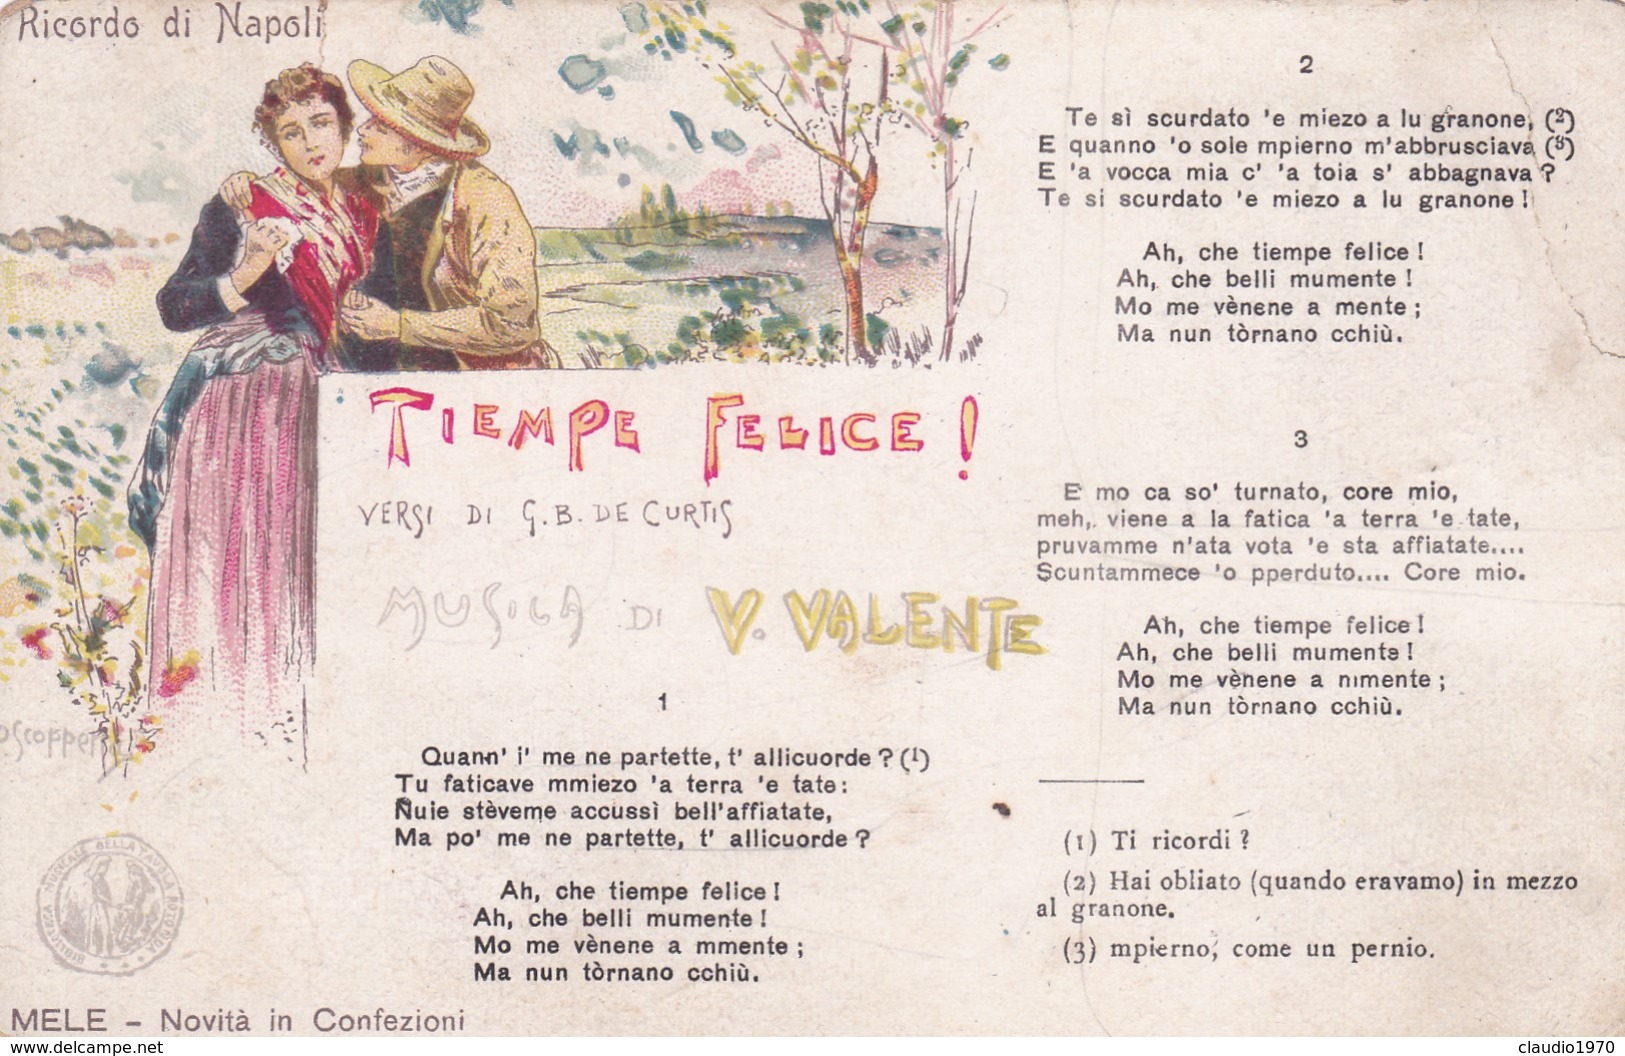 Ricordo di Napoli
TIEMPE FELICE!
VERSI DI G. B. DE CURTIS
MUSICA DI V. VALENTE
1
Quann' i' me ne partette, t' allicuorde? (1)
Tu faticave mmiezo 'a terra 'e tate:
Nuie stèveme accussì bell'affiatate,
Ma po' me ne partette, t' allicuorde?
Ah, che tiempe felice!
Ah, che belli mumente!
Mo me vènene a mmente;
Ma nun tòrnano cchiù.
2
Te sì scurdato 'e miezo a lu granone, (2)
E quanno 'o sole mpierno m'abbrusciava (3)
E 'a vocca mia c' 'a toia s' abbagnava?
Te si scurdato 'e miezo a lu granone!
Ah, che tiempe felice!
Ah, che belli mumente!
Mo me vènene a mente;
Ma nun tòrnano cchiù.
3
E mo ca so' turnato, core mio,
meh, viene a la fatica 'a terra 'e tate,
pruvamme n'ata vota 'e sta affiatate....
Scuntammece 'o pperduto.... Core mio.
Ah, che tiempe felice!
Ah, che belli mumente!
Mo me vènene a mmente;
Ma nun tòrnano cchiù.
(1) Ti ricordi?
(2) Hai obliato (quando eravamo) in mezzo
al granone.
(3) mpierno, come un pernio.
MELE - Novità in Confezioni
www.delcampe.net
claudio1970